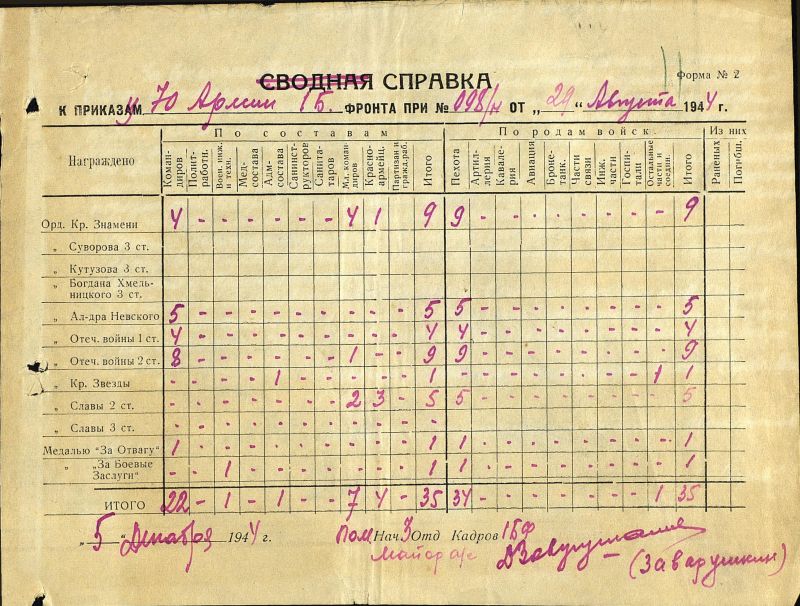 Форма № 2
СВОДНАЯ СПРАВКА
К ПРИКАЗАМ 70 Армии 1Б. ФРОНТА ПРИ № 098/н ОТ „29“ Августа 1944 г.
Награждено По составам По родам войск Из них
Коман-диров Полит-работн. Воен. инж. и техн. Мед-состава Адм-состава Санинст-рукторов Санита-таров Мл. коман-диров Красно-армейц. Партизан и гражд. раб. Итого Пехота Артил-лерия Кавале-рия Авиация Броне-танк. Части связи Инж. части Госпи-тали Остальные части и соедин. Итого Раненых Погибш.
Орд. Кр. Знамени 4 - - - - - - 4 1 9 9 - - - - - - - - 9
„ Суворова 3 ст.
„ Кутузова 3 ст.
„ Богдана Хмель-
ницкого 3 ст.
„ Ал-дра Невского 5 - - - - - - - - - 5 5 - - - - - - - - 5
„ Отеч. войны 1 ст. 4 - - - - - - - - - 4 4 - - - - - - - - 4
„ Отеч. войны 2 ст. 8 - - - - - - 1 - - 9 9 - - - - - - - - 9
„ Кр. Звезды - - - - 1 - - - - - 1 - - - - - - - - 1 1
„ Славы 2 ст. - - - - - - - 2 3 - 5 5 - - - - - - - - 5
„ Славы 3 ст. - - - - - - - - - - - - - - - - - - - -
Медалью "За Отвагу" 1 - - - - - - - - - 1 1 - - - - - - - - 1
„ „За Боевые
Заслуги" - - 1 - - - - - - - 1 1 - - - - - - - - 1
ИТОГО 22 - 1 - 1 - - 7 4 - 35 34 - - - - - - - 1 35
„5“ Декабря 1944 г. Пом Нач 3 Отд Кадров 1БФ
Майор а/с
(Заварушкин)